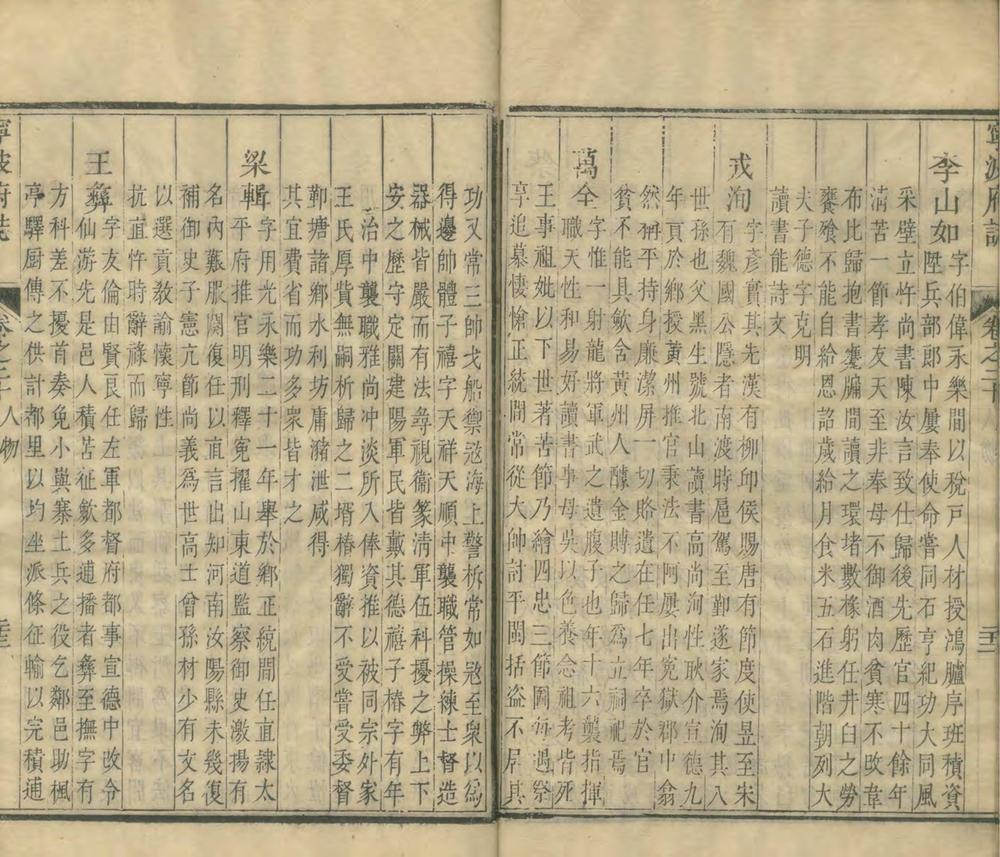 寧波府誌
卷之三十
李山如 字伯偉永樂間以稅戶人材授鴻臚序班積資
陞兵部郎中屢奉使命嘗同石亨紀功大同風
采壁立忤尚書陳汝言致仕歸後先歷官四十餘年
淸苦一節孝友天至非奉母不御酒肉貧寒不改韋
布比歸抱書蹇牖間讀之環堵數椽躬任井臼之勞
饔飧不能自給恩詔歲給月食米五石進階朝列大
夫子德字克明
讀書能詩文
戎洵 字彥實其先漢有柳卬侯賜唐有節度使昱至宋
有魏國公隱者南渡時扈駕至鄞遂家焉洵其八
世孫也父黑生號北山讀書高尚洵性耿介宣德九
年貢於鄉授黃州推官秉法不阿屢出冤獄郡中翕
然稱平持身廉潔屏一切賂遺在任七年卒於官
貧不能具歛含黃州人醵金賻之歸爲立祠祀焉
萬全 字惟一射龍將軍武之遺腹子也年十六襲指揮
職天性和易好讀書事母吳以色養念祖考皆死
王事祖妣以下世著苦節乃繪四忠三節圖每遇祭
享追慕悽愴正統間常從大帥討平閩括盜不居其
功又常三帥戈船禦寇海上警柝常如寇至衆以爲
得邊帥體子禧字天祥天順中襲職管操練士督造
器械皆嚴而有法尋視衞篆淸軍伍科擾之弊上下
安之歷守定關建陽軍民皆戴其德禧子椿字有年
治中襲職雅尚冲淡所入俸資推以被同宗外家
王氏厚貲無嗣析歸之二壻椿獨辭不受嘗受委督
鄞塘諸鄉水利坊庸瀦泄咸得
其宜費省而功多衆皆才之
梁輯 字用光永樂二十一年舉於鄉正統間任直隸太
平府推官明刑釋寃擢山東道監察御史激揚有
名內艱服闋復任以直言出知河南汝陽縣未幾復
補御史子憲亢節尚義爲世高士曾孫材少有文名
以選貢敎諭懷寧性
抗直忤時辭祿而歸
王彝 字友倫由賢良任左軍都督府都事宣德中改令
仙游先是邑人積苦征歛多逋播者彝至撫字有
方科差不擾首奏免小嶼寨土兵之役乞鄰邑助楓
亭驛厨傳之供計都里以均坐派條征輸以完積逋
寧波府誌
卷之三十 人物